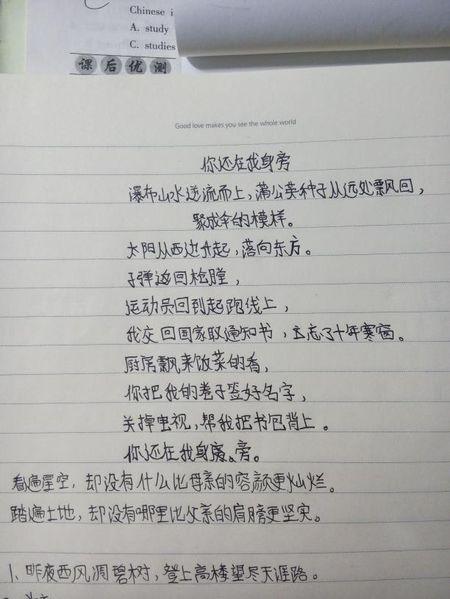 Chinese i
A. study
C. studies
课后优测
Good love makes you see the whole world
你还在我身旁
瀑布山水逆流而上,蒲公英种子从远处飘回,
聚成伞的模样。
太阳从西边升起,落向东方。
子弹返回枪膛,
运动员回到起跑线上,
我交回录取通知书,忘了十年寒窗。
厨房飘来饭菜的香,
你把我的卷子签好名字,
关掉电视,帮我把书包背上。
你还在我身旁。
看遍星空,却没有什么比母亲的容颜更灿烂。
踏遍土地,却没有哪里比父亲的肩膀更坚实。
1、昨夜西风凋碧树,登上高楼望尽天涯路。